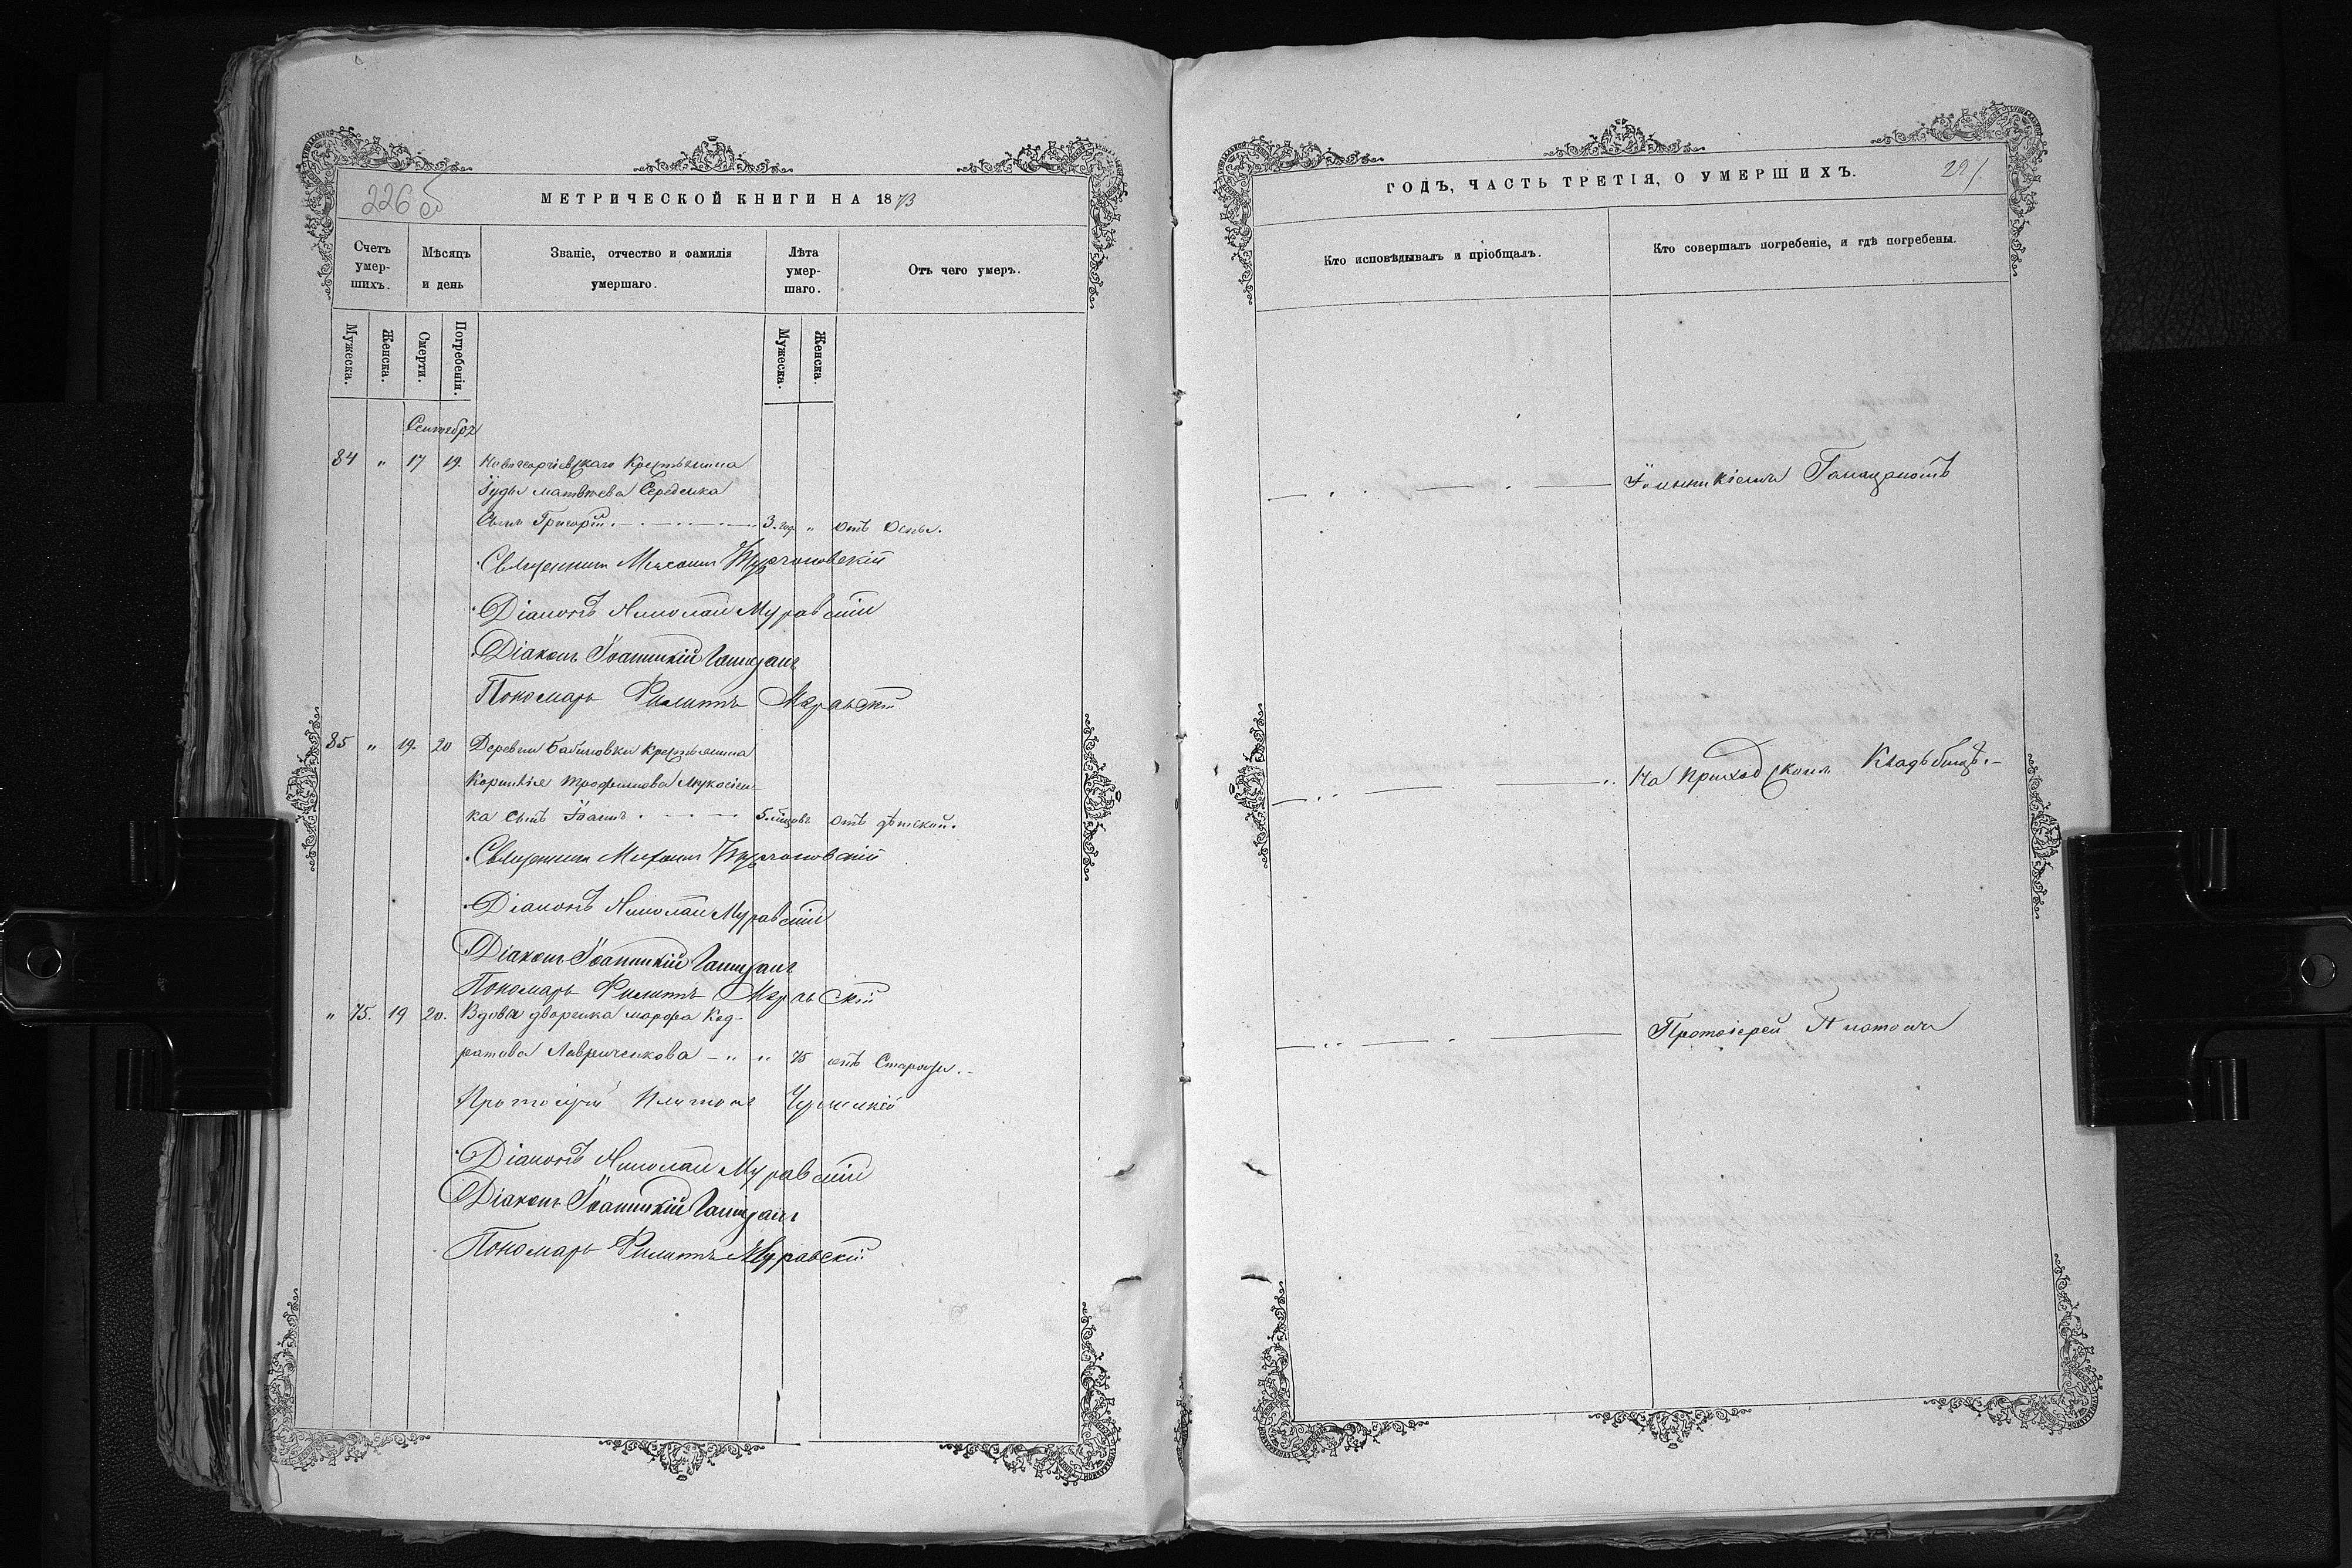 226 об
МЕТРИЧЕСКОЙ КНИГИ НА 1873
Счетъ умер-шихъ.
Мѣсяцъ и день
Званіе, отчество и фамилія умершаго.
Лѣта умер-шаго.
Отъ чего умеръ.
Мужеска.
Женска.
Смерти.
Погребенія.
Мужеска.
Женска.
Сентябрь
84 " 17 19. Новогеоргіевскаго Крестьянина
Іуды Матвѣева Середенка
Сынъ Григорій 3. год. " отъ Оспы.
Священник Михаилъ
Діаконъ Николай Муравскій
Діаконъ Іоанникій
Пономарь Филиппъ Муравскій
85 " 19. 20 Деревни Бабичовки Крестьянина
Корнилія Трофимова Мукосѣен-
ка сынъ Іоаннъ 5. мѣсяцовъ отъ дѣтской.
Священник Михаилъ
Діаконъ Николай Муравскій
Діаконъ Іоанникій
Пономарь Филиппъ Муравскій
" 75. 19 20. Вдова дворянка Марфа Код-
ратова Лавриченкова " " 75 отъ Старости.
Протоіерей Платонъ
Діаконъ Николай Муравскій
Діаконъ Іоанникій
Пономарь Филиппъ Муравскій
ГОДЪ, ЧАСТЬ ТРЕТІЯ, О УМЕРШИХЪ.
227.
Кто исповѣдывалъ и пріобщалъ.
Кто совершалъ погребеніе, и гдѣ погребены.
На приходскомъ Кладбищѣ.
Протоіерей Платонъ